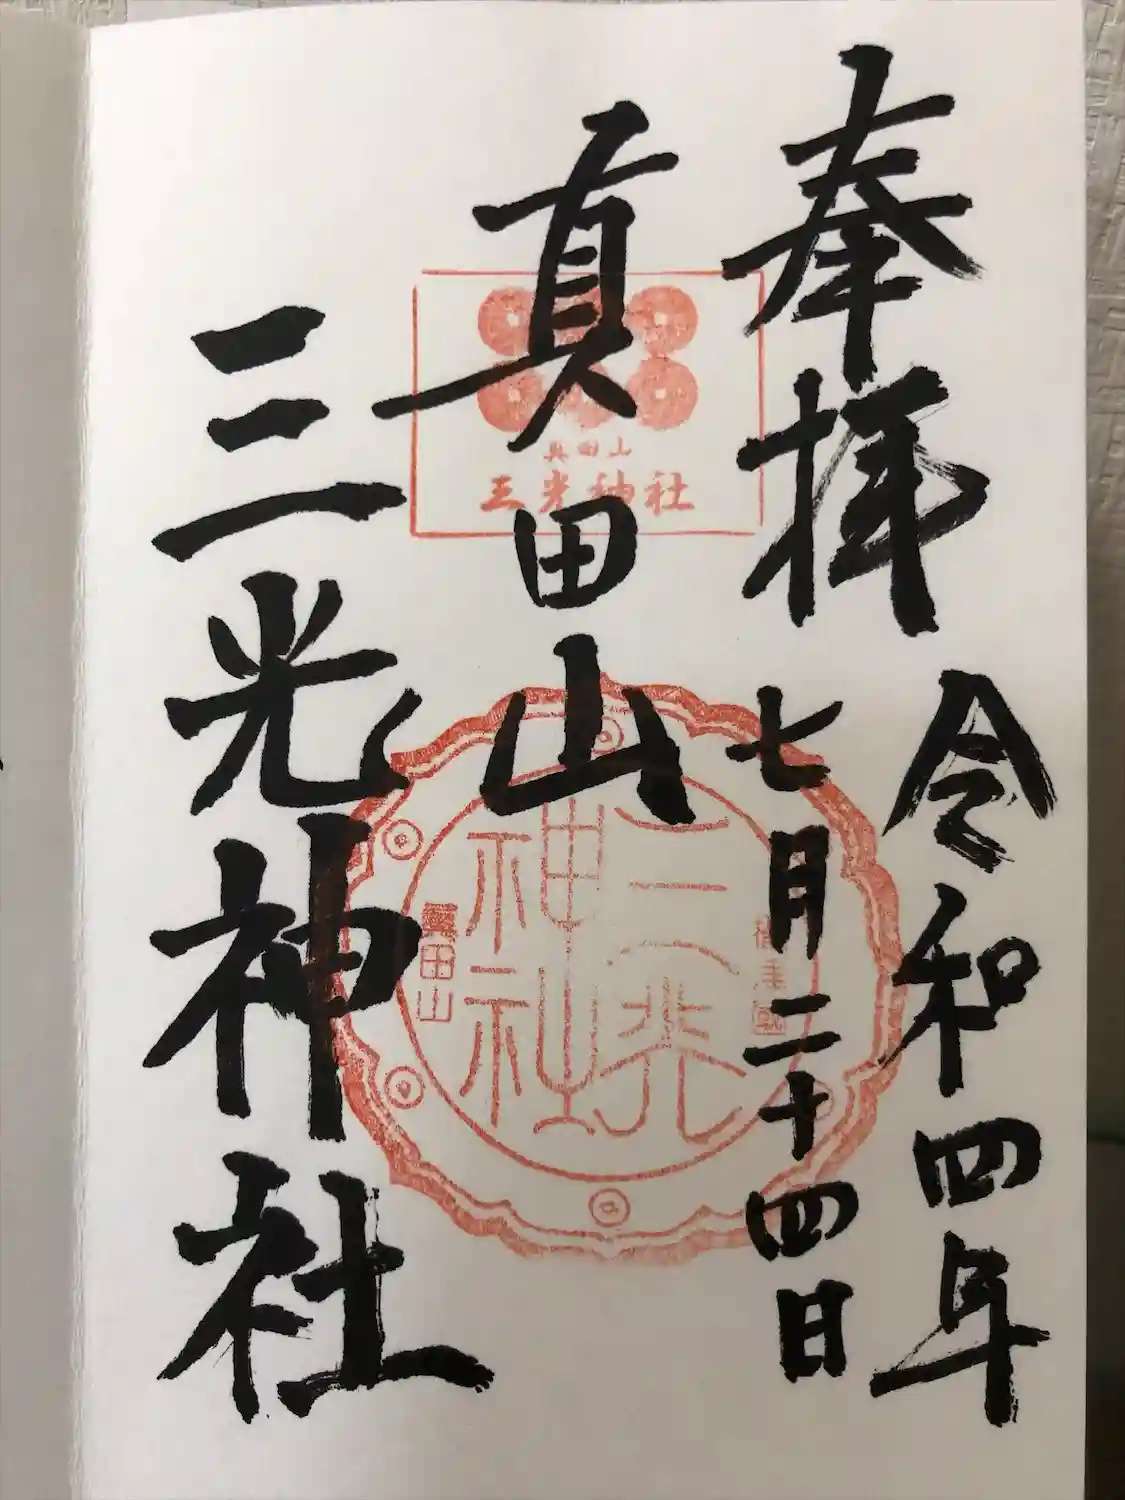 奉拝
令和四年
七月二十四日
真田山
三光神社
真田山
三光神社
三光
神社
眞田山